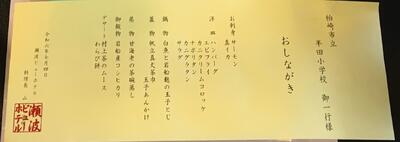 柏崎市立
半田小学校 御一行様
おしながき
お刺身 サーモン
真イカ
洋皿 ハンバーグ
エビフライ
カニクリームコロッケ
ナポリタン
カニグラタン
サラダ
鍋物 白魚と岩船麩の玉子とじ
蓋物 帆立真丈茶巾
玉子あんかけ
蒸物 甘海老の茶碗蒸し
御飯物 岩船産コシヒカリ
デザート 村上茶のムース
わらび餅
令和六年六月四日
瀬波ビューホテル
料理長
瀬波
ビュー
ホテル